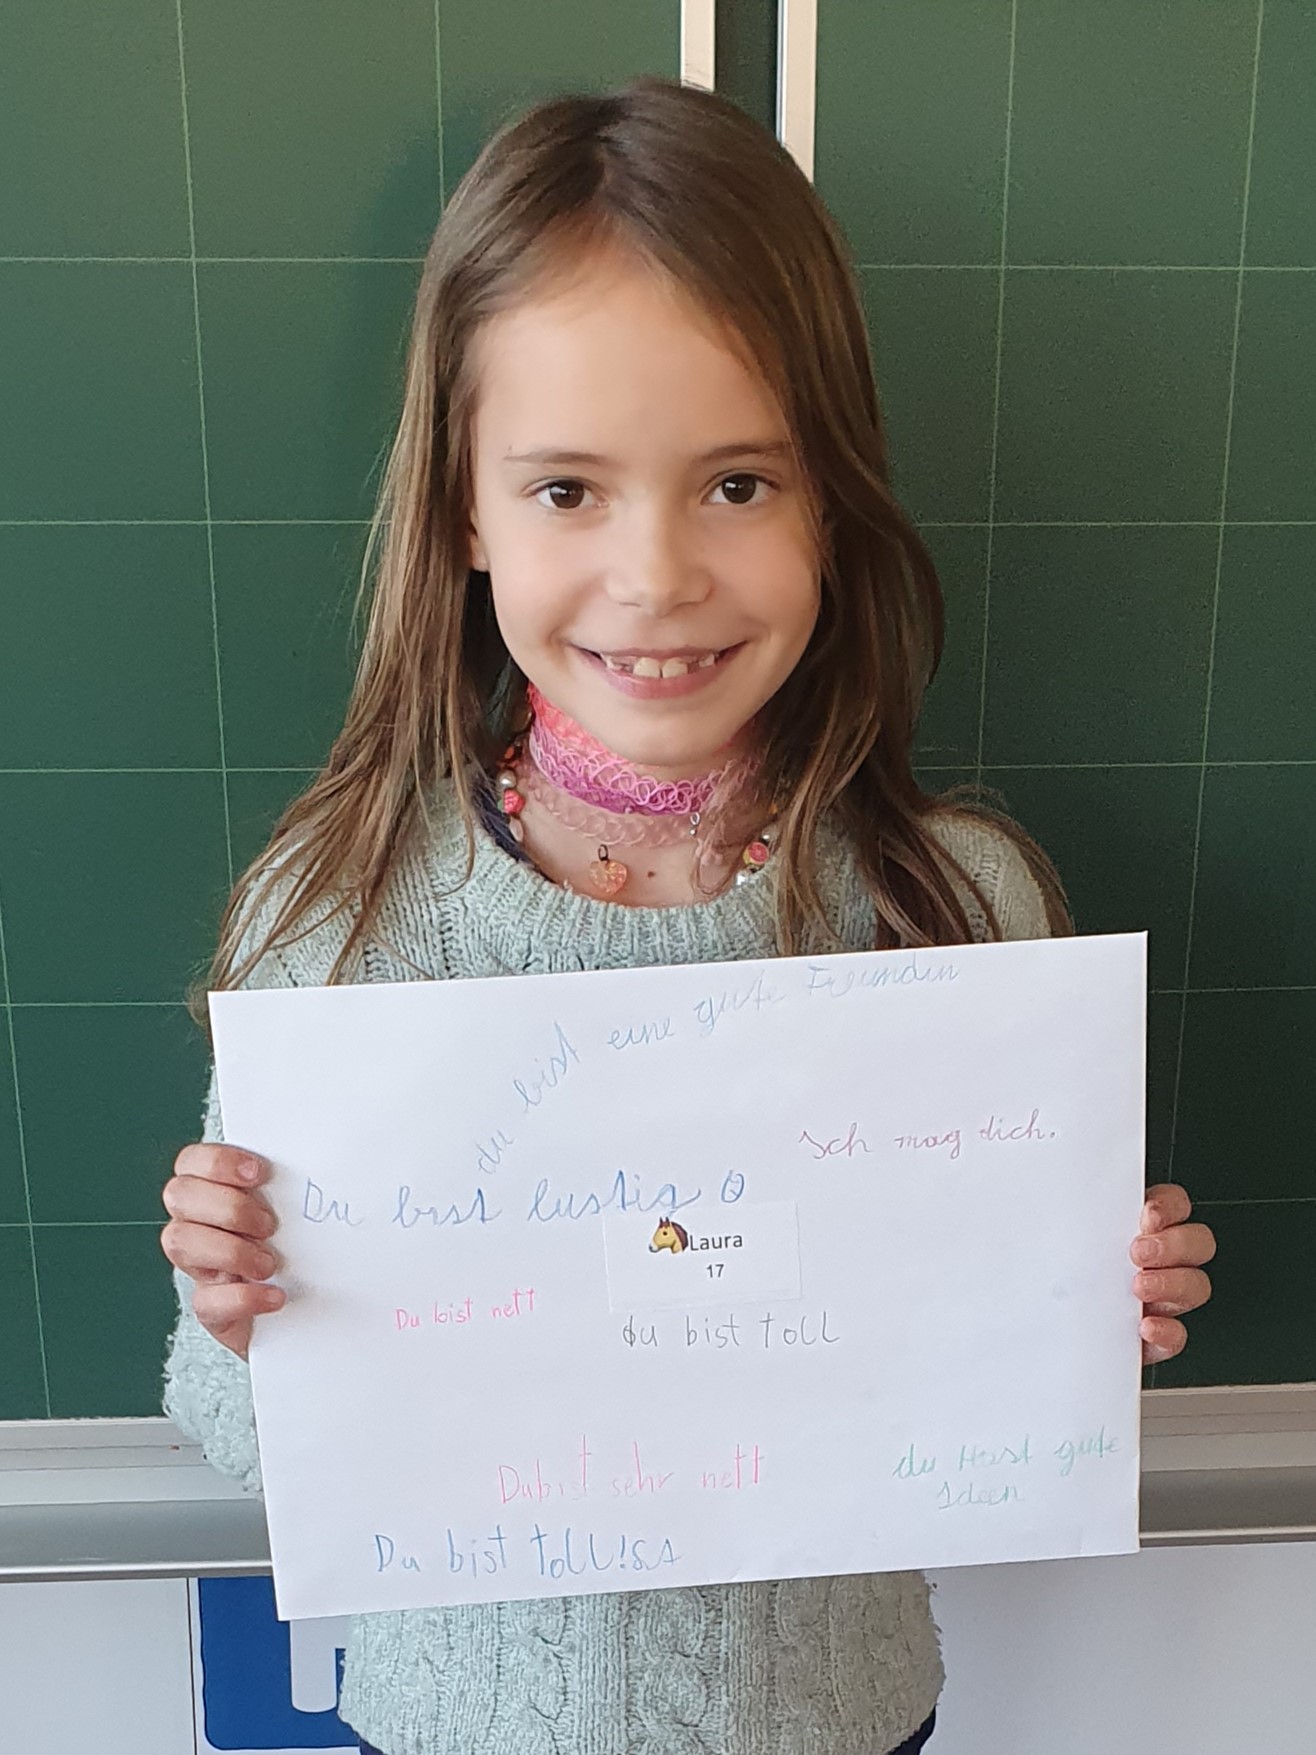 du bist eine gute Freundin
Ich mag dich.
Du bist lustig
Laura
17
Du bist nett
du bist toll
Du bist sehr nett
du Hast gute
Ideen
Du bist toll!